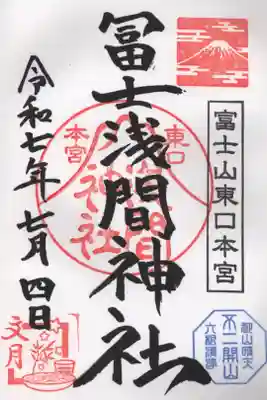 富士山東口本宮
冨士浅間神社
東口
本宮
神社
令和七年七月四日
文月
不二開山
六根清浄